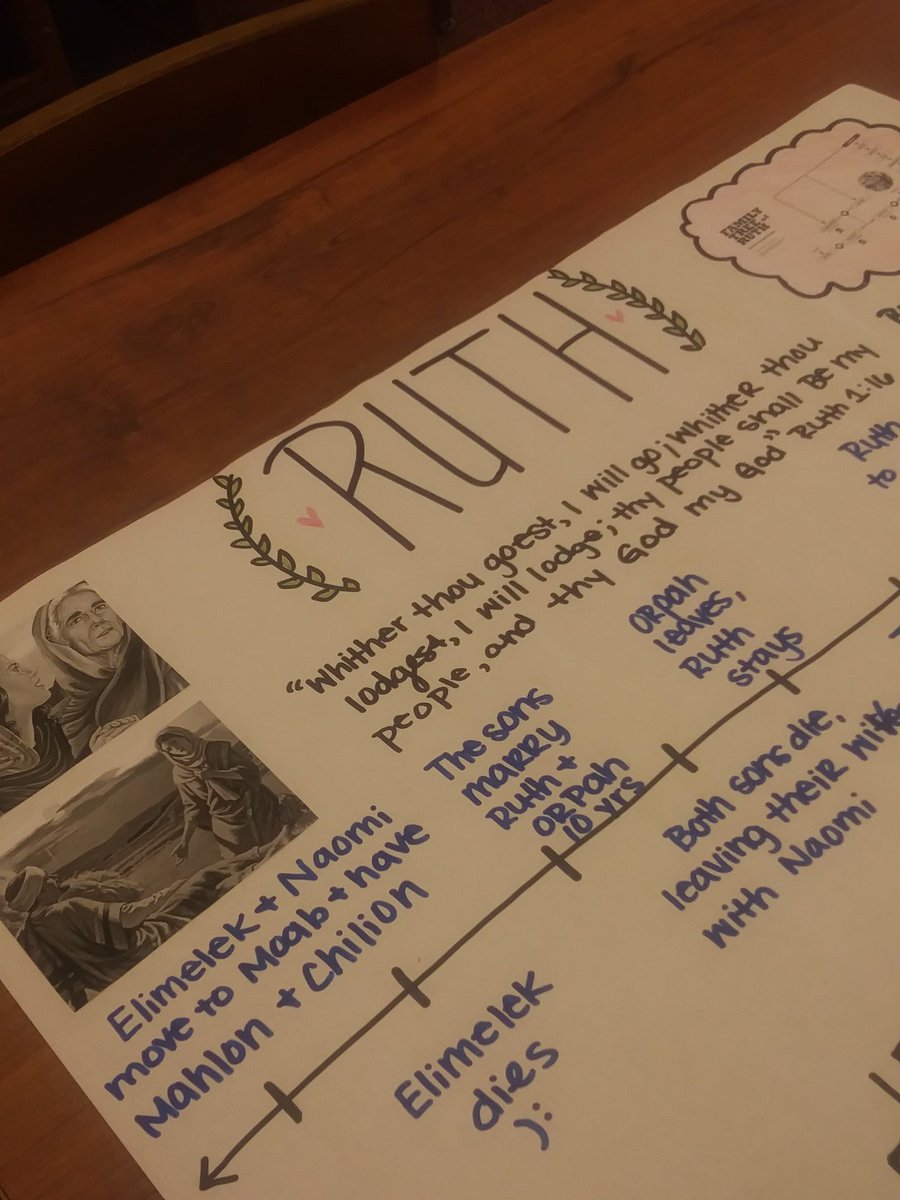 FAMILY
TREE of
RUTH
RUTH
"Whither thou goest, I will go; Whither thou
lodgest, I will lodge; thy people shall Be my
people, and thy God my God" Ruth 1:16
Ruth
to
Orpah
leaves,
Ruth
stays
The sons
marry
Ruth +
Orpah
10 yrs
Both sons die,
leaving their
with Naomi
Elimelek + Naomi
move to Moab + have
Mahlon + Chilion
Elimelek
dies
):